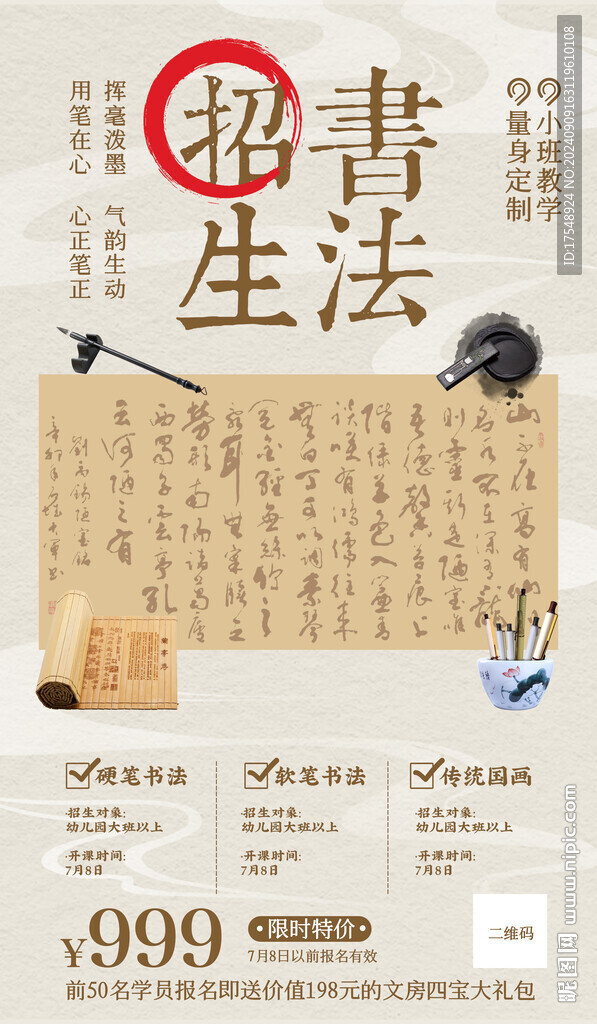 書法
招生
挥毫泼墨 气韵生动
用笔在心 心正笔正
小班教学
量身定制
山不在高有仙
名水不在深有龍
則靈斯是陋室唯
吾德馨苔痕上
階綠草色入簾青
談笑有鴻儒往来
無白丁可以調素琴
閱金經無絲竹之
亂耳無案牘之
勞形南陽諸葛廬
西蜀子雲亭孔
云何陋之有
劉禹錫陋室銘
硬笔书法
·招生对象:
幼儿园大班以上
·开课时间:
7月8日
软笔书法
·招生对象:
幼儿园大班以上
·开课时间:
7月8日
传统国画
·招生对象:
幼儿园大班以上
·开课时间:
7月8日
¥999
·限时特价·
7月8日以前报名有效
二维码
前50名学员报名即送价值198元的文房四宝大礼包
ID:17548924 NO:20240909163119610108
昵图网 www.nipic.com